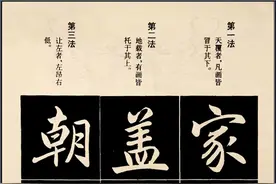 第一法
天覆者,凡画皆
冒于其下。
家
第二法
地载者,有画皆
托于其上。
盖
第三法
让左者,左昂右
低。
朝